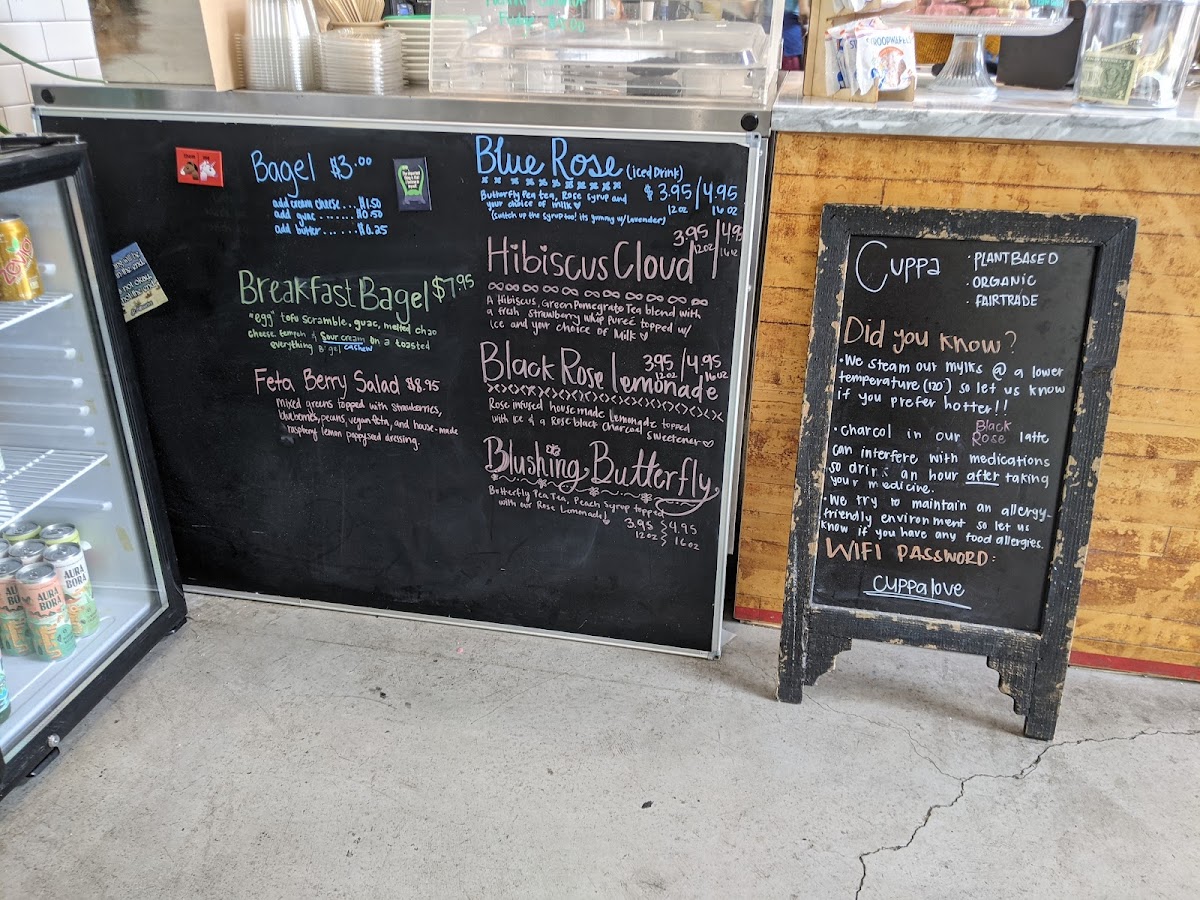 Bagel $3.00
add cream cheese....$1.50
add guac......$0.50
add butter......$0.25
Breakfast Bagel $7.95
"egg" tofu scramble, guac, melted chao
cheese, tempeh & sour cream on a toasted
everything Bagel cashew
Feta Berry Salad $8.95
mixed greens topped with strawberries,
blueberries, pecans, vegan feta, and house-made
raspberry lemon poppyseed dressing.
Blue Rose (iced Drink)
Butterfly Pea tea, Rose syrup and
your choice of milk
$3.95/4.95
12oz 16oz
(switch up the syrup too! its yummy w/lavender)
Hibiscus Cloud
3.95/4.95
12oz 16oz
A Hibiscus, Green Pomegrate Tea blend with
a fresh strawberry whip Pureé topped w/
ice and your choice of Milk
Black Rose Lemonade
3.95/4.95
12oz 16oz
Rose infused house made lemonade topped
with ice & a Rose black charcoal sweetener
Blushing Butterfly
Butterfly Pea Tea, Peach syrup topped
with our Rose Lemonade!
3.95 4.95
12oz 16oz
Cuppa
· PLANT BASED
· ORGANIC
· FAIRTRADE
Did you know?
· We steam our mylks @ a lower
temperature (120°) so let us know
if you prefer hotter!!
· charcol in our Black Rose latte
can interfere with medications
so drink an hour after taking
your medicine.
· We try to maintain an allergy-
friendly environment so let us
know if you have any food allergies.
WIFI PASSWORD:
cuppalove
AURA
BORA
AURA
BORA
AURA
BORA